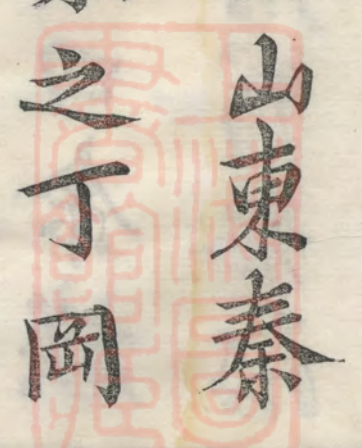 山東秦
之丁岡